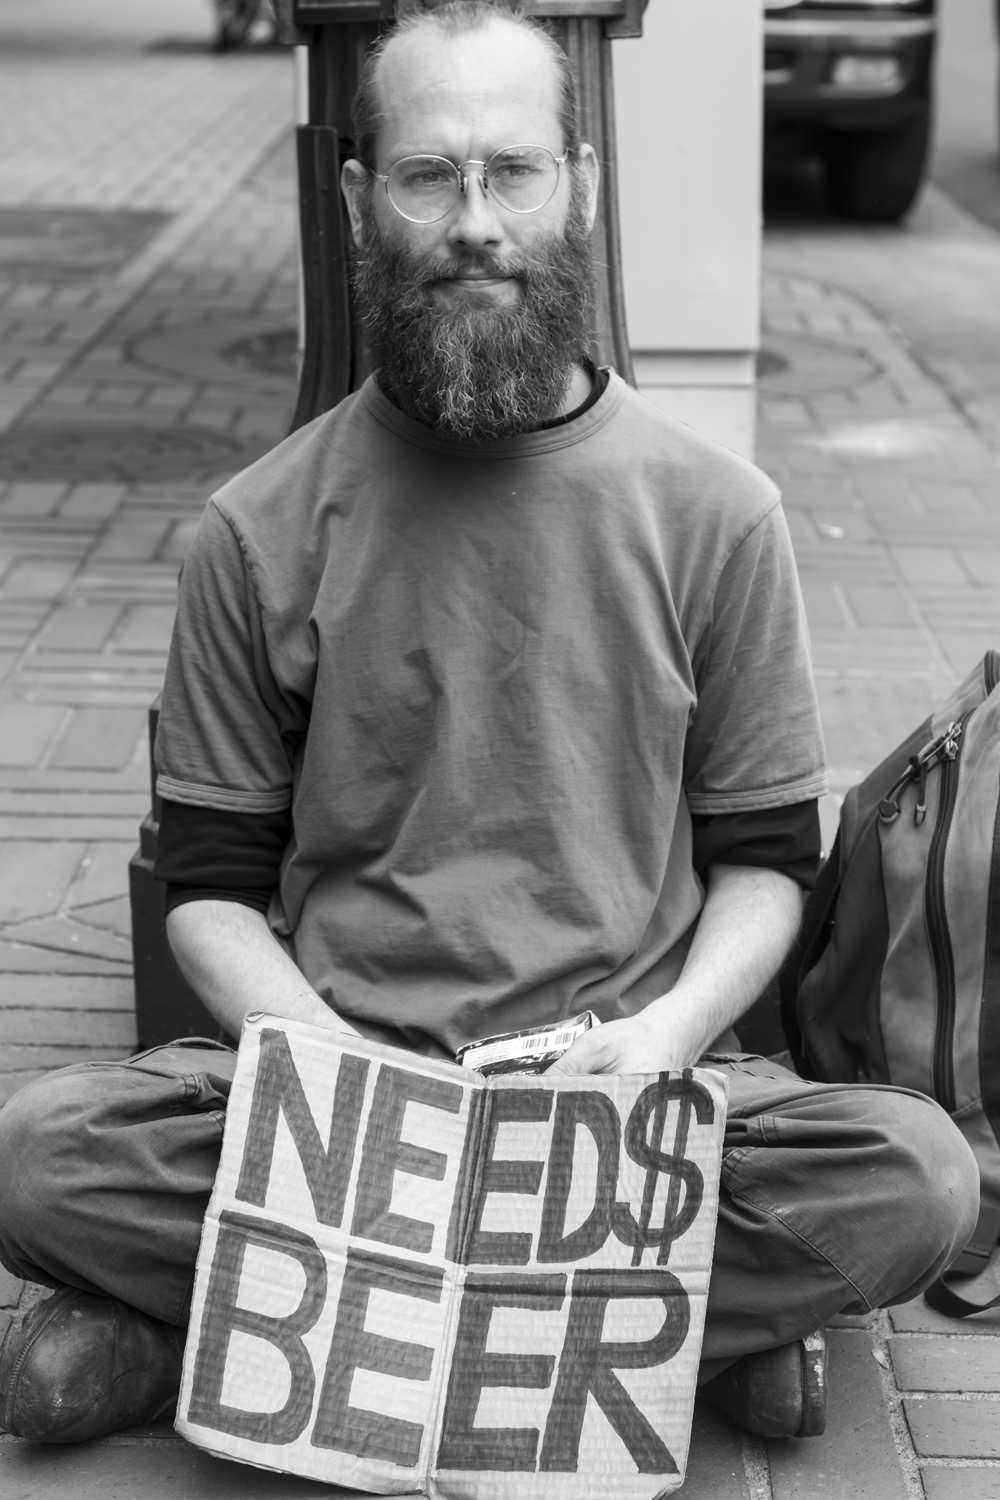 NEED$
BEER